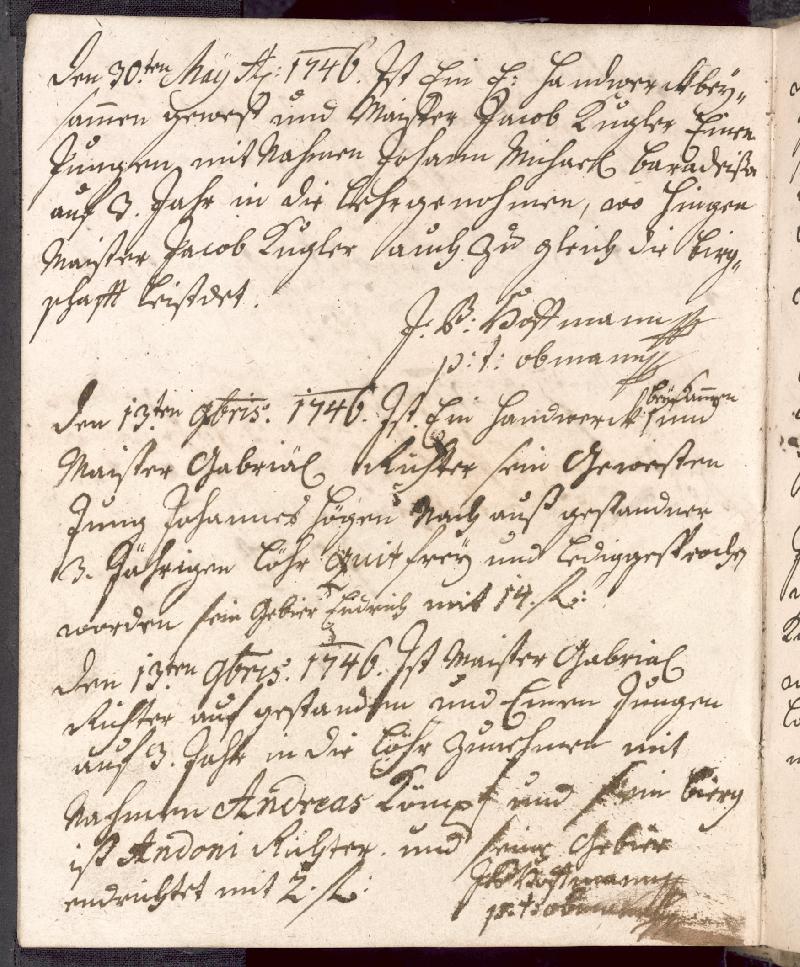 Den 30.ten Maÿ A: 1746. Ist Ein E: Handwerckh beÿ„
samen gewest und Maister Jacob Kugler Einen
Jungen mit Nahmen Johann Michael baradeiser
auf 3. Jahr in die Lehr genohmen, wo hingen
Maister Jacob Kugler auch zu gleich die birg„
schafft leistdet.
J: B: Hoffmann
p: t: obmann
Den 13.ten 9breis. 1746. Ist Ein Handwerckh beÿsamen und
Maister Gabriäl Richter sein Gewesten
Jung Johannes Högen Nach auß gestandner
3. Jährigen Löhr Quit freÿ und Lediggesprochen
worden sein Gebier Endrich mit 14. f:
Den 13.ten 9breis. 1746. Ist Maister Gabrial
Richter auf gestanden und Einen Jungen
auf 3. Jahr in die Löhr zunehmen mit
Nahmen Andreas Kömpf und sein bierg
ist Andoni Richter. und seine Gebier
endrichtet mit 2. f:
J B Hoffmann
p: t: obmann